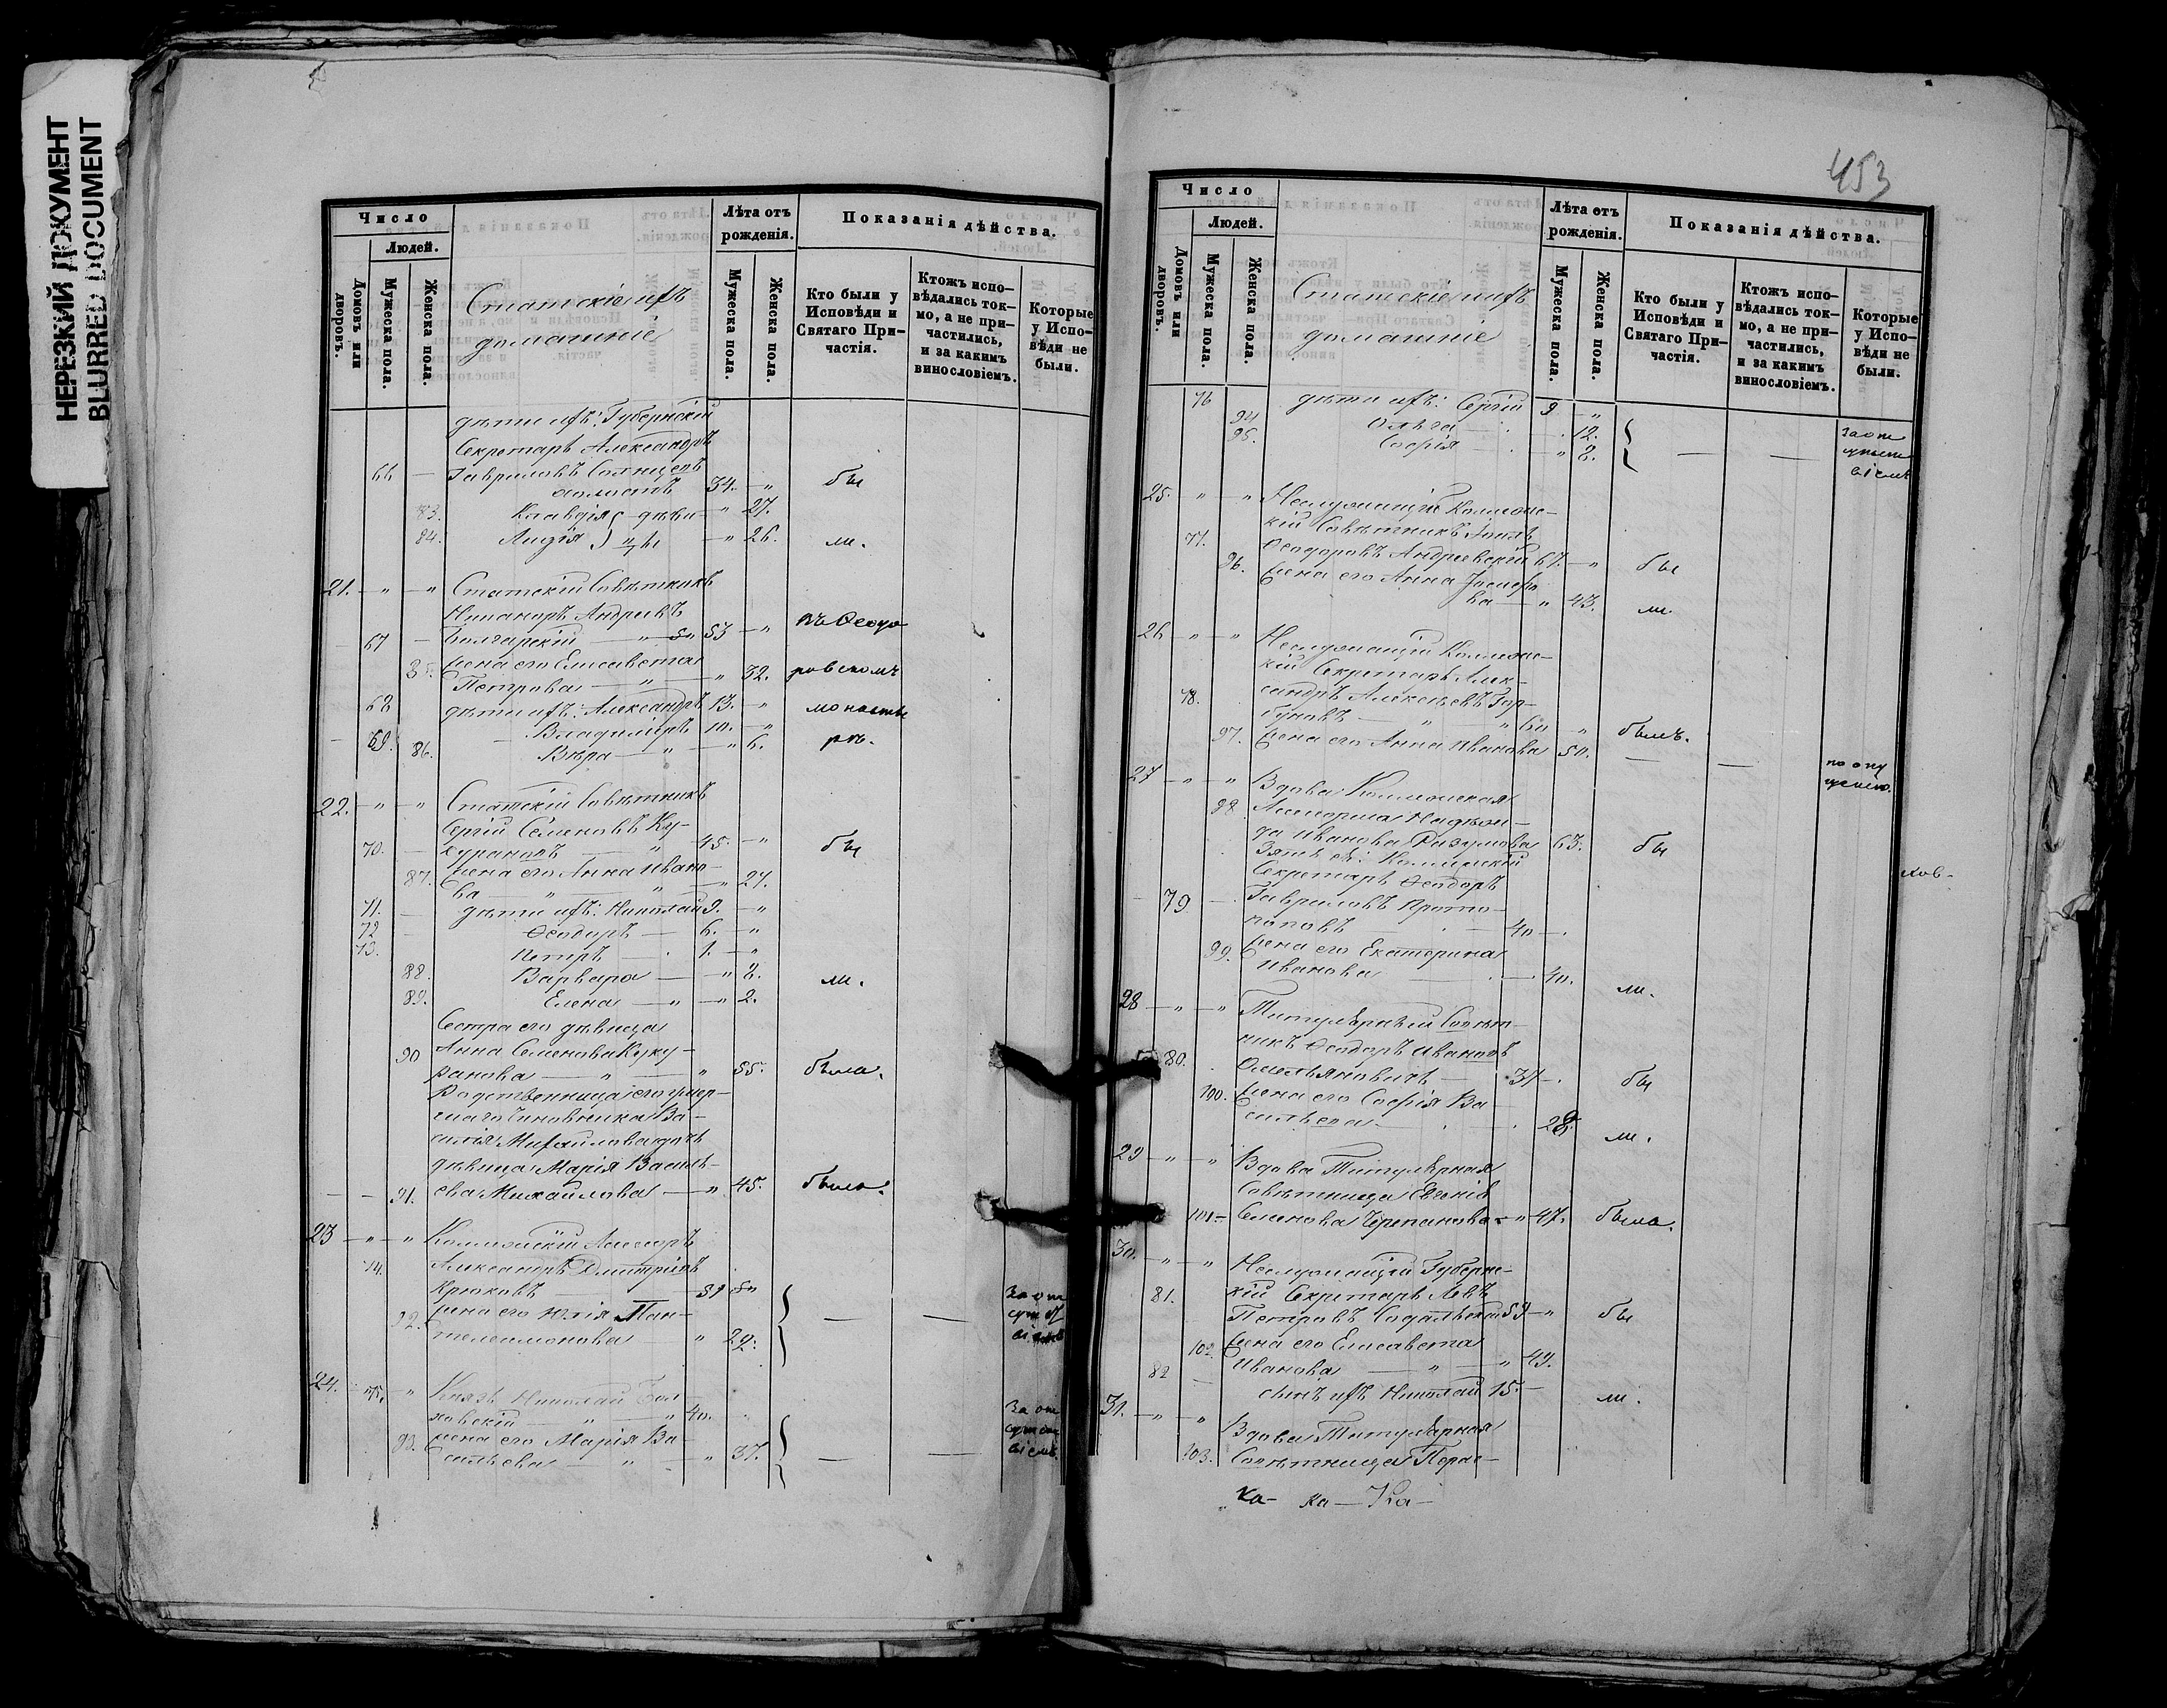 НЕРЕЗКИЙ ДОКУМЕНТ
BLURRED DOCUMENT
Число
Людей.
Домовъ или дворовъ.
Мужеска пола.
Женска пола.
Статскіе и ихъ
домашніе
Лѣта отъ рожденія.
Мужеска пола.
Женска пола.
Показанія дѣйства.
Кто были у Исповѣди и Святаго При-частія.
Ктожъ испо-вѣдались ток-мо, а не при-частились, и за какимъ винословіемъ.
Которые у Испо-вѣди не были.
дѣти ихъ: Губернскій
Секретарь Александръ
66 — Гавриловъ Солнцевъ
холостъ 34. — „ бы
83. Клавдія дѣви- „ 27.
84. Лидія цы — „ 26. ли.
21. — „ — „ Статскій Совѣтникъ
Никаноръ Андреевъ
67 — Болгарскій — „ 53 — „ въ Ѳеодо
85. жена его Елисавета
Петрова — „ — „ 32. ровскомъ
68 дѣти ихъ: Александръ 13. — „ монасты
69. Владиміръ 10. — „
86. Вѣра — „ — „ 6. рѣ.
22. — „ — „ Статскій Совѣтникъ
Сергій Семеновъ Ку-
70. — курановъ — „ 45. — „ бы
87. жена его Анна Ивано-
ва „ — „ — „ 27.
71. — дѣти ихъ: Николай 9. — „
72 — Ѳеодоръ — 6. — „
73. Петръ — . 1. — „
88. Варвара — „ 8.
89. Елена — „ — „ 2. ли.
Сестра его дѣвица
90 Анна Семенова Куку-
ранова — „ — „ 55. была.
Родственница его умер-
шаго Чиновника Ва-
силія Михайлова дочь
дѣвица Марія Василь-
— — 91. ева Михайлова — „ 45. была.
23 — „ — „ Коллежскій Ассесоръ
74. Александръ Дмитріевъ
Крюковъ — 59
92. жена его Юлія Пан-
телеимонова „ 29. — — За от сутст віемъ
24. 75. „ Князь Николай
ховскій — „ — „ 40.
93. жена его Марія Ва-
сильева — „ — „ 37. — — За от сутст віемъ.
453
Число
Людей.
Домовъ или дворовъ.
Мужеска пола.
Женска пола.
Статскіе и ихъ
домашніе
Лѣта отъ рожденія.
Мужеска пола.
Женска пола.
Показанія дѣйства.
Кто были у Исповѣди и Святаго При-частія.
Ктожъ испо-вѣдались ток-мо, а не при-частились, и за какимъ винословіемъ.
Которые у Испо-вѣди не были.
76 дѣти ихъ: Сергій 9 — „
94 Ольга — . — . 12.
95. Софія — . „ 8. — — За от сутст віемъ
25. — „ — „ Неслужащій Коллежс-
кій Совѣтникъ
77. Ѳеодоровъ Андреевскій 67. — „ бы
96. жена его Анна Іосифо
ва — „ 43. ли.
26 — „ — „ Неслужащій Коллежс-
кій Секретарь Алек-
78. сандръ Алексѣевъ Гор-
буновъ — „ „ 60 „ былъ.
97. жена его Анна Иванова 50. — — по опу щенію.
27 — „ — „ Вдова Коллежская
98 Ассесорша Надеж-
да Иванова Разумова 63. бы
Зять ея: Коллежскій
Секретарь Ѳеодоръ
79 — Гавриловъ Прото-
поповъ . — 40 — .
99. жена его Екатерина
Иванова . — 40. ли.
28 — „ — „ Титулярный Совѣт-
никъ Ѳеодоръ Ивановъ
80. Омельяновичъ — 37 — . бы
100. жена его Софія Ва
сильева — . 28. ли.
29 — „ — „ Вдова Титулярная
Совѣтница Евгенія
101 — Семенова Черепанова — „ 47. была.
30. — „ — „ Неслужащій Губернс-
81. кій Секретарь Левъ
Петровъ 59 — „ бы
102. жена его Елисавета
Иванова — „ — „ 49.
82 — сынъ ихъ Николай 15. — ли.
31. — „ — „ Вдова Титулярная
103. Совѣтница Парас-
ка- ка — Ка-